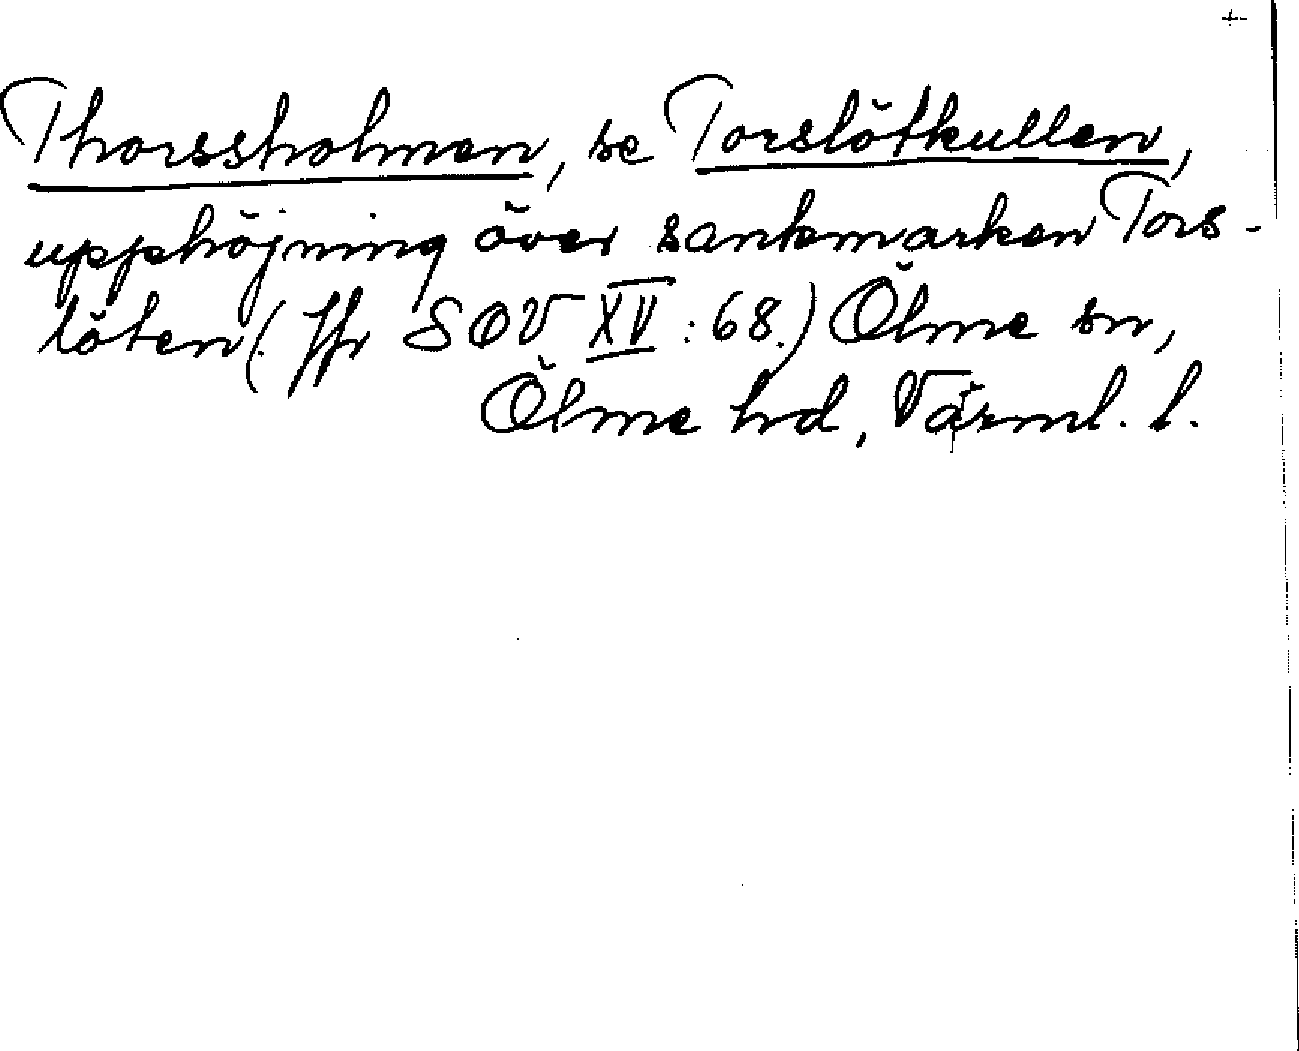 Thorssholmen, se Torslötkullen,
upphöjning över sankmarken Tors-
löten (. Jfr SOV XV : 68.) Ölme sn,
Ölme hd, Värml. l.